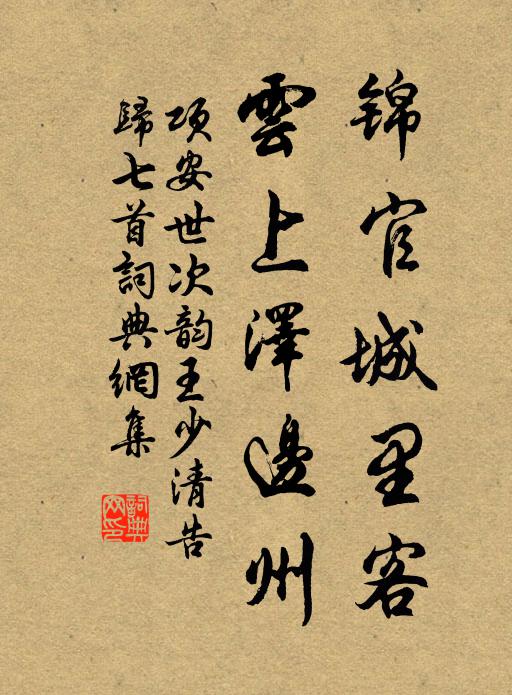 锦官城里客
雲上澤邊州
项安世次韵王少清告
歸七首詞典網集
詞典網印